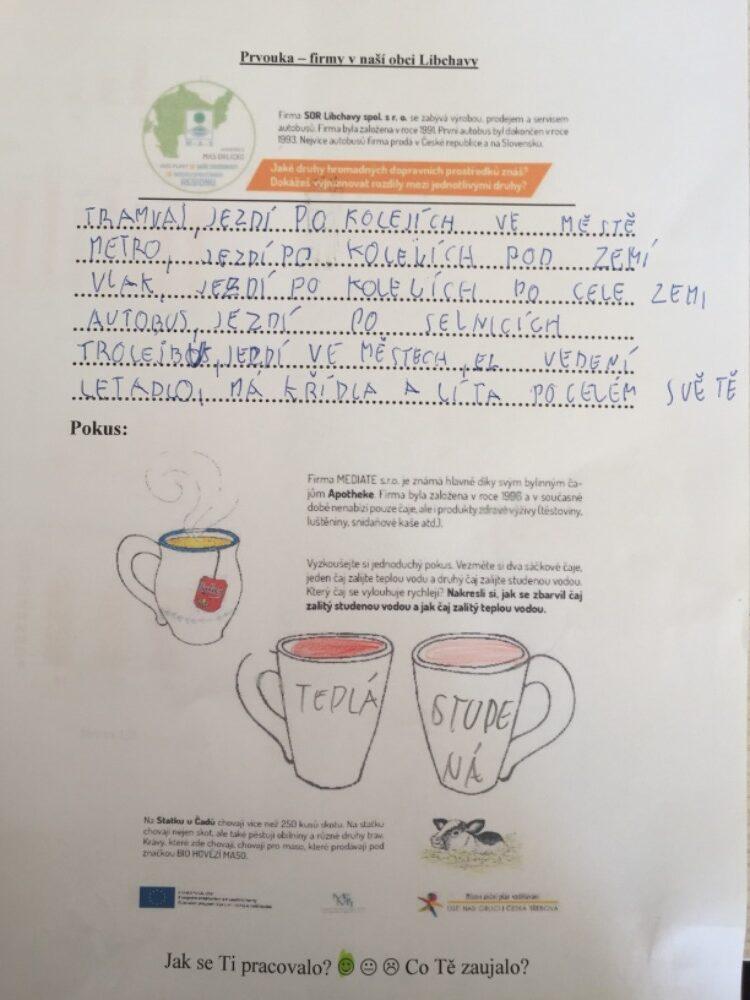 Prvouka – firmy v naší obci Libchavy
Firma SOR Libchavy spol. s r. o. se zabývá výrobou, prodejem a servisem
autobusů. Firma byla založena v roce 1991. První autobus byl dokončen v roce
1993. Nejvíce autobusů firma prodá v České republice a na Slovensku.
MAS
MAS ORLICKO
REGIONU
Jaké druhy hromadných dopravních prostředků znáš?
Dokážeš vyjmenovat rozdíly mezi jednotlivými druhy?
TRAMVAJ, JEZDÍ PO KOLEJÍCH VE MĚSTĚ
METRO, JEZDÍ PO KOLEJÍCH POD ZEMÍ
VLAK, JEZDÍ PO KOLEJÍCH PO CELE ZEMI
AUTOBUS, JEZDÍ PO SELNICÍCH
TROLEJBUS, JEZDÍ VE MĚSTECH, EL VEDENÍ
LETADLO, MÁ KŘÍDLA A LÍTA PO CELÉM SVĚTĚ
Pokus:
Firma MEDIATE s.r.o. je známá hlavně díky svým bylinným ča-
jům Apotheke. Firma byla založena v roce 1996 a v současné
době nenabízí pouze čaje, ale i produkty zdravé výživy (těstoviny,
luštěniny, snídaňové kaše atd.).
Vyzkoušejte si jednoduchý pokus. Vezměte si dva sáčkové čaje,
jeden čaj zalijte teplou vodu a druhý čaj zalijte studenou vodou.
Který čaj se vylouhuje rychleji? Nakresli si, jak se zbarvil čaj
zalitý studenou vodou a jak čaj zalitý teplou vodou.
TEPLÁ
STUDE
NÁ
Na Statku u Čadů chovají více než 250 kusů skotu. Na statku
chovají nejen skot, ale také pěstují obilniny a různé druhy trav.
Krávy, které zde chovají, chovají pro maso, které prodávají pod
značkou BIO HOVĚZÍ MASO.
Místní akční plán vzdělávání
ÚSTÍ NAD ORLICÍ | ČESKÁ TŘEBOVÁ
Jak se Ti pracovalo? ☺ 😐 ☹ Co Tě zaujalo?